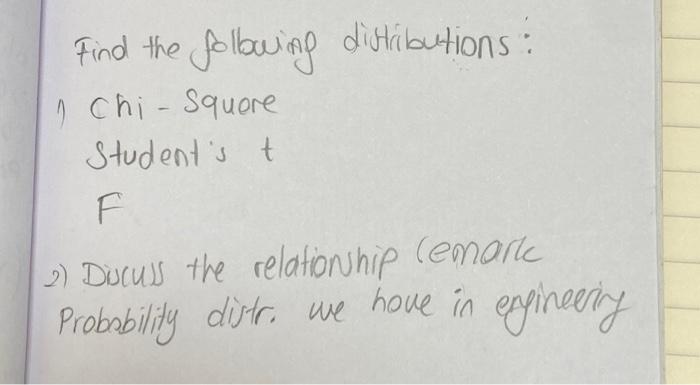 Find the following distributions:
1) Chi - Square
Student's t
F
2) Discuss the relationship (emark
Probability distr. we have in engineering